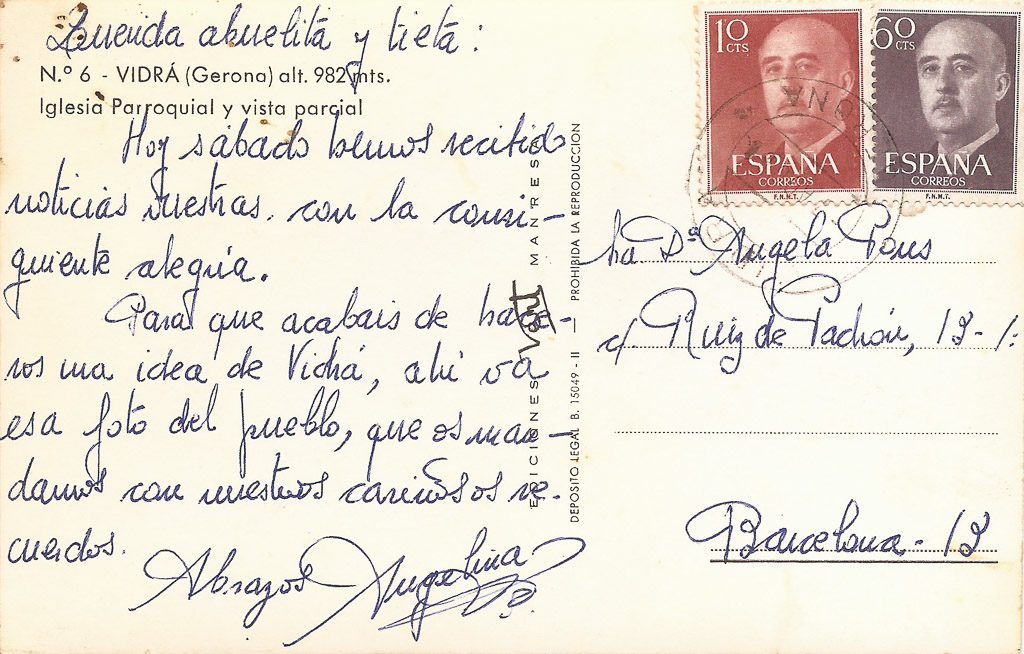 Querida abuelita y tieta:
N.º 6 - VIDRÁ (Gerona) alt. 982 mts.
Iglesia Parroquial y vista parcial
Hoy sábado hemos recibido
noticias vuestras. con la consi-
guiente alegría.
Para que acabais de hace-
ros una idea de Vidrá, ahí va
esa foto del pueblo, que os man-
damos con nuestros cariñosos re-
cuerdos.
Abrazos Angelina
EDICIONES
MANRESA
DEPOSITO LEGAL B. 15049 - II — PROHIBIDA LA REPRODUCCION
10 CTS
ESPAÑA
CORREOS
F.N.M.T.
60 CTS
ESPAÑA
CORREOS
F.N.M.T.
Dª Angela Pons
c/. Ruiz de Padrón, 13-1:
Barcelona - 13